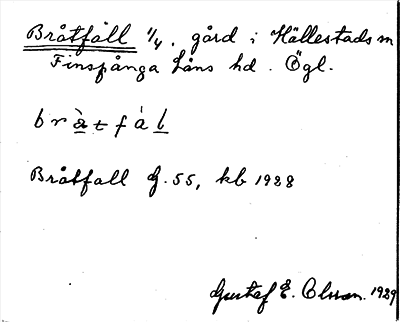 Bråtfall 1/4. gård i Hällestads sn
Finspånga läns hd. Ögl.
bràtfàl
Bråtfall G. 55, kb 1928
Gustaf E. Olsson. 1929